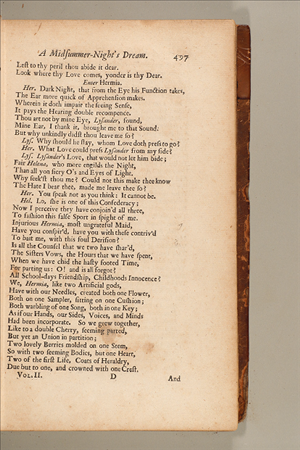 A Midsummer-Night's Dream. 497
Lest to thy peril thou abide it dear.
Look where thy Love comes, yonder is thy Dear.
Enter Hermia.
Her. Dark Night, that from the Eye his Function takes,
The Ear more quick of Apprehension makes.
Wherein it doth impair the seeing Sense,
It pays the Hearing double recompence.
Thou art not by mine Eye, Lysander, found,
Mine Ear, I thank it, brought me to that Sound.
But why unkindly didst thou leave me so?
Lys. Why should he stay, whom Love doth press to go?
Her. What Love could press Lysander from my side?
Lys. Lysander's Love, that would not let him bide;
Fair Helena, who more engilds the Night,
Than all yon fiery O's and Eyes of Light.
Why seek'st thou me? Could not this make thee know
The Hate I bear thee, made me leave thee so?
Her. You speak not as you think: It cannot be.
Hel. Lo, she is one of this Confederacy;
Now I perceive they have conjoin'd all three,
To fashion this false Sport in spight of me.
Injurious Hermia, most ungrateful Maid,
Have you conspir'd, have you with these contriv'd
To bait me, with this foul Derision?
Is all the Counsel that we two have shar'd,
The Sisters Vows, the Hours that we have spent,
When we have chid the hasty footed Time,
For parting us: O! and is all forgot?
All School-days Friendship, Childhoods Innocence?
We, Hermia, like two Artificial gods,
Have with our Needles, created both one Flower,
Both on one Sampler, sitting on one Cushion;
Both warbling of one Song, both in one Key;
As if our Hands, our Sides, Voices, and Minds
Had been incorporate. So we grew together,
Like to a double Cherry, seeming parted,
But yet an Union in partition;
Two lovely Berries molded on one Stem,
So with two seeming Bodies, but one Heart,
Two of the first Life, Coats of Heraldry,
Due but to one, and crowned with one Crest.
VOL. II. D And